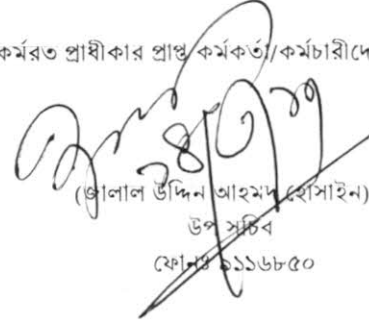 কর্মরত প্রাধীকার প্রাপ্ত কর্মকর্তা/কর্মচারীদে
(জালাল উদ্দিন আহমদ হোসাইন)
উপ সচিব
ফোনঃ ৯১১৬৮৫০